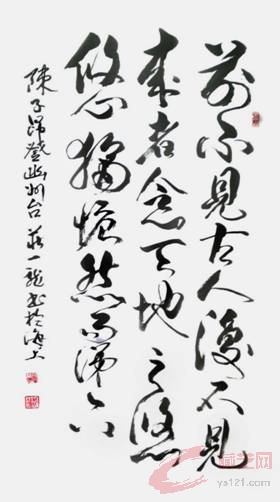 前不見古人後不見
來者念天地之悠
悠獨愴然而涕下
陳子昂登幽州台 一龍书於海上
ys121.com